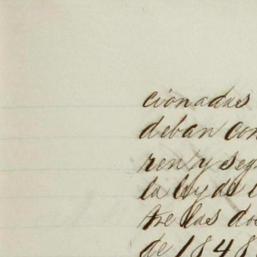 cionadas
deban con
ren y seg
la ley de
tre las do
de 1848